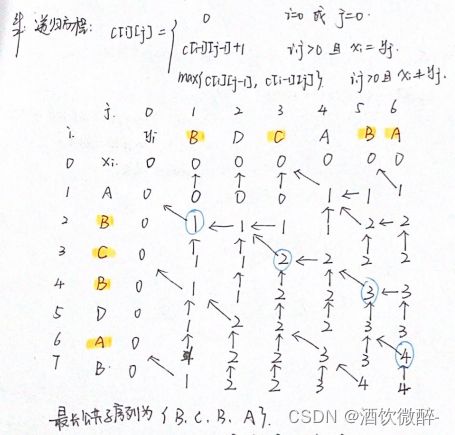 解: 递归方程: C[i][j] = { 0 i=0 或 j=0.
C[i-1][j-1]+1 i.j>0 且 xi=yj.
max{C[i][j-1], C[i-1][j]} i.j>0 且 xi≠yj.
j. 0 1 2 3 4 5 6
i. yi B D C A B A
0 xi. 0 0 0 0 0 0 0
1 A 0 0 0 0 1 1 1
2 B 0 1 1 1 1 2 2
3 C 0 1 1 2 2 2 2
4 B 0 1 1 2 2 3 3
5 D 0 1 2 2 2 3 3
6 A 0 1 2 2 3 3 4
7 B 0 1 2 2 3 4 4
最长公共子序列为 {B.C.B.A}.
CSDN @酒饮微醉-